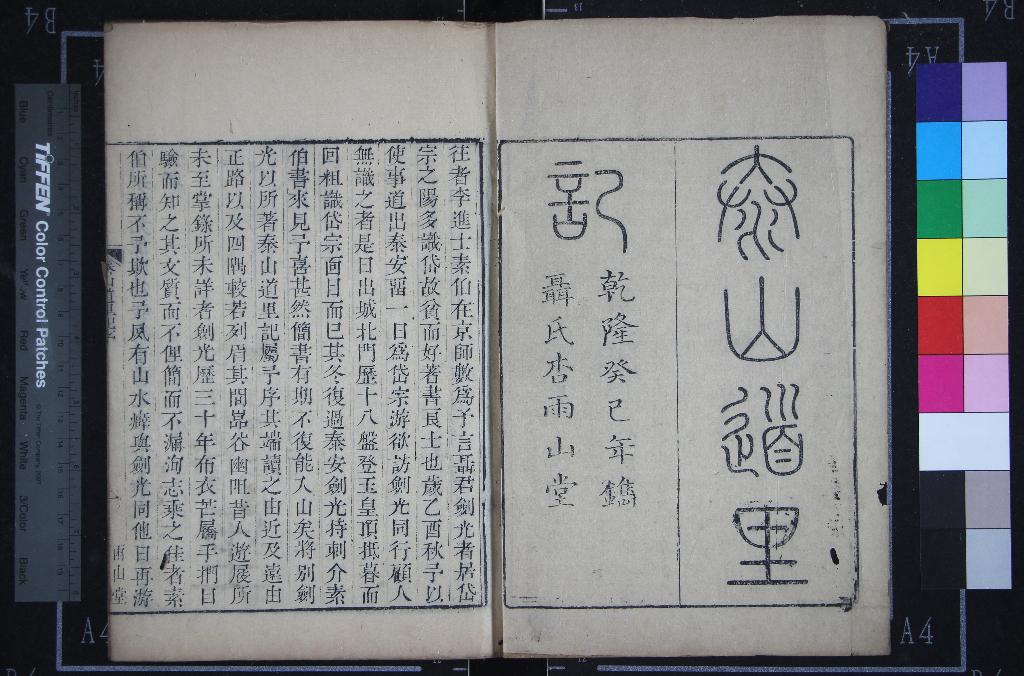 泰山道里
記
乾隆癸巳年鐫
聶氏杏雨山堂
往者李進士素伯在京師數爲予言聶君劍光者居岱
宗之陽多識岱故貧而好著書良士也歲乙酉秋予以
使事道出泰安畱一日爲岱宗游欲訪劍光同行顧人
無識之者是日出城北門歷十八盤登玉皇頂抵暮而
回粗識岱宗面目而已其冬復過泰安劍光持刺介素
伯書來見予喜甚然簡書有期不復能入山矣將別劍
光以所著泰山道里記屬予序其端讀之由近及遠由
正路以及四隅較若列眉其間嵒谷幽阻昔人遊屐所
未至掌錄所未詳者劍光歷三十年布衣芒屩手捫目
驗而知之其文質而不俚簡而不漏洵志乘之佳者素
伯所稱不予欺也予夙有山水癖與劍光同他日再游
雨山堂
TIFFEN Color Control Patches
© The Tiffen Company, 2007
Centimetres
Inches
Blue
Cyan
Green
Yellow
Red
Magenta
White
3/Color
Black
B4
A4
A4
A4
A4